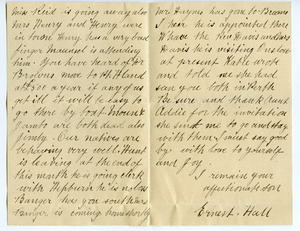 Miss Reid is going away also
Mrs Henry and Henry were
in town Henry has a very bad
finger Maunsel is attending
him. You have heard of Dr
Brolins move to
at £300 a year if any of us
get ill it will be easy to
go there by boat Mount &
Jumbo are both dead also
Jimbly. Our natives are
behaving very well. Hunt
is leaving at the end of
this month he is going clerk
with Hepburn he is no loss
Banger has gone south Mrs
Banger is coming home shortly
Mr Haynes has gone to Broome
I hear he is appointed there
Whan the Rev Harris and Mrs
Harris he is visiting Onslow
at present Katie wrote
and told me she had
seen you both in Perth
Be sure and thank Aunt
Addie for the invitation
she sent me to go and stay
with them. I must say good
bye with love to yourself
and Joy
I remain your
affectionate son
Ernest. Hall